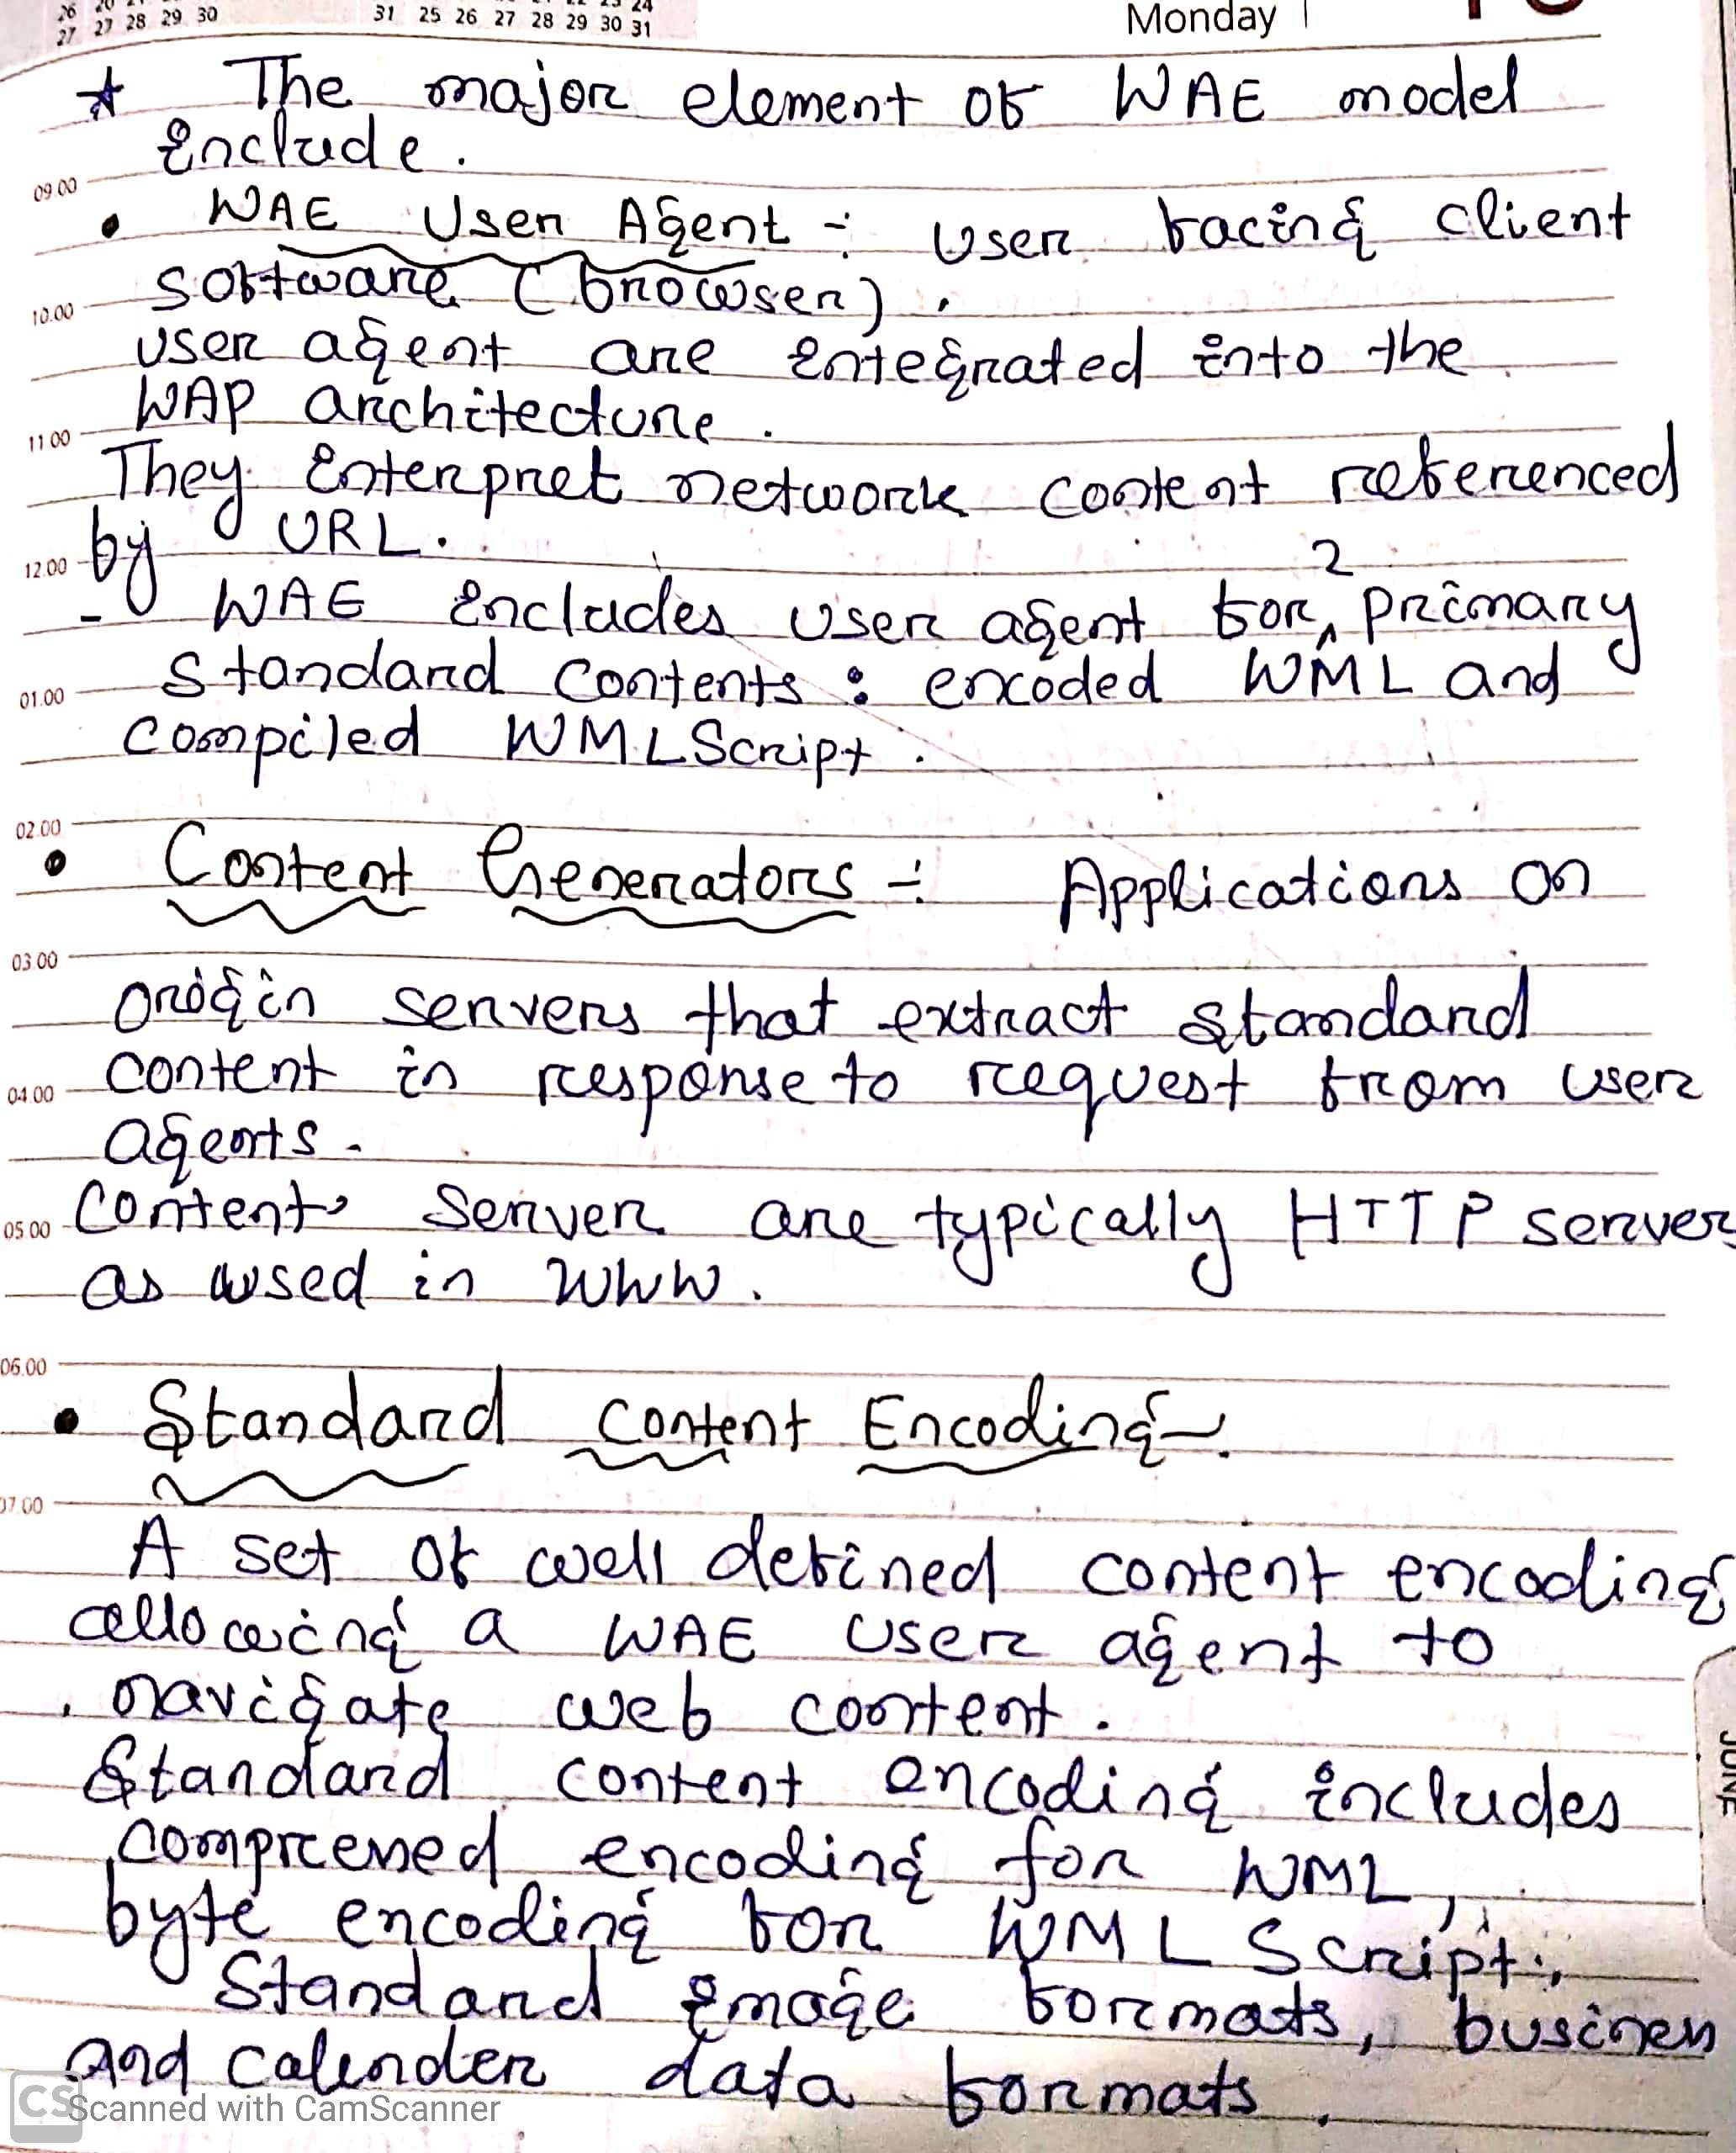 27 28 29 30
31 25 26 27 28 29 30 31
Monday
* The major element of WAE model
include.
09.00
• WAE User Agent :- User facing client
software (browser).
10.00
user agent are integrated into the
WAP architecture.
11.00
They interpret network content referenced
by URL.
12.00
2
- WAE includes user agent for ^ primary
standard contents : encoded WML and
01.00
compiled WMLScript.
02.00
• Content Generators :- Applications on
03.00
origin servers that extract standard
content in response to request from user
04.00
agents.
Content server are typically HTTP server
05.00
as used in WWW.
06.00
• Standard Content Encoding :-
07.00
A set of well defined content encoding
allowing a WAE user agent to
navigate web content.
Standard content encoding includes
compressed encoding for WML,
byte encoding for WML Script,
Standard image formats, business
and calender data formats.
JUNE
CS Scanned with CamScanner